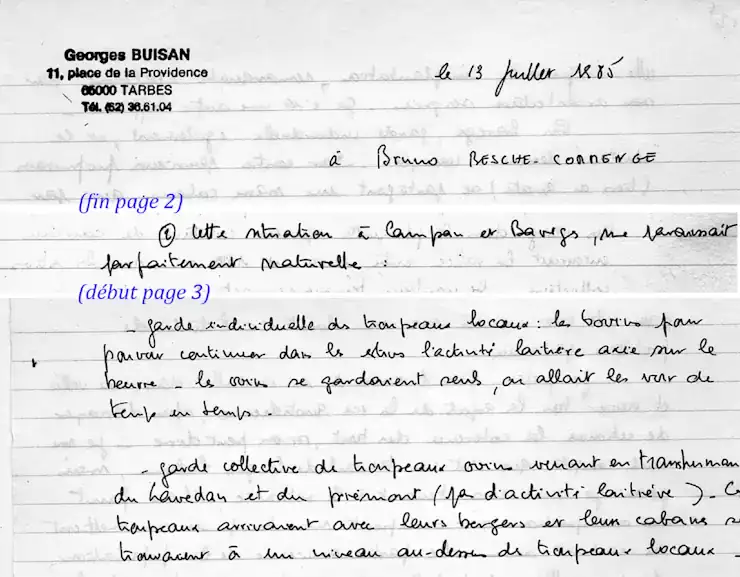 Georges BUISAN
11, place de la Providence
65000 TARBES
Tél. (62) 36.61.04
le 13 Juillet 1985
à Bruno BESCHE-COMMENGE
(fin page 2)
① Cette situation à Campan et Barèges, me paraissait
parfaitement naturelle :
(début page 3)
- garde individuelle des troupeaux locaux : les bovins pour
pouvoir continuer dans les estives l'activité laitière axée sur le
beurre - les ovins se gardaient seuls, on allait les voir de
temps en temps.
- garde collective de troupeaux ovins venant en transhuman
du Lavedan et du piémont (pas d'activité laitière). Ces
troupeaux arrivaient avec leurs bergers et leurs cabanes se
trouvaient à un niveau au-dessus des troupeaux locaux -